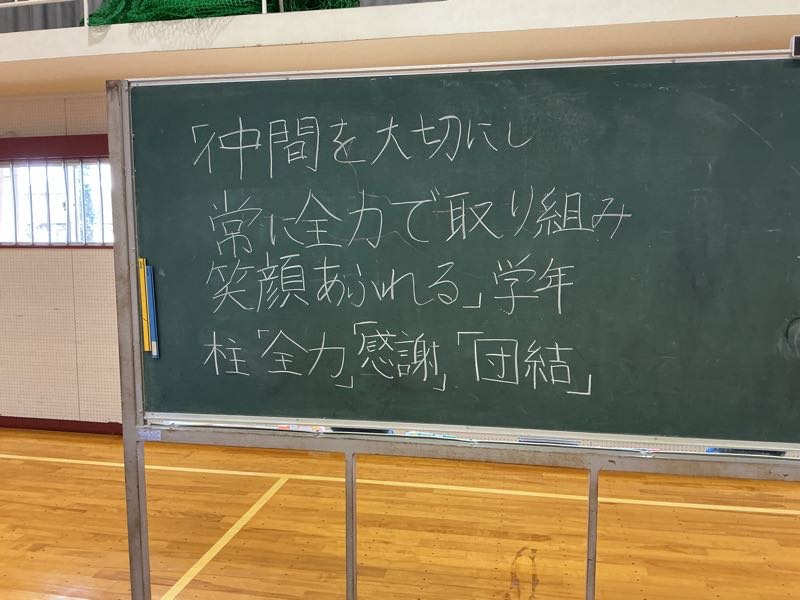 「仲間を大切にし
常に全力で取り組み
笑顔あふれる」学年
柱「全力」「感謝」「団結」